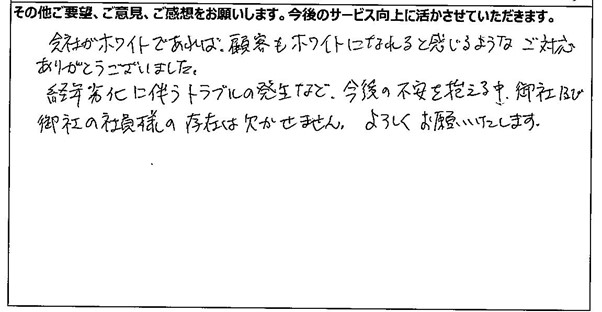 その他ご要望、ご意見、ご感想をお願いします。今後のサービス向上に活かさせていただきます。
会社がホワイトであれば、顧客もホワイトになれると感じるような ご対応
ありがとうございました。
経年劣化に伴うトラブルの発生など、今後の不安を抱える中、御社及び
御社の社員様の存在は欠かせません。よろしくお願いいたします。